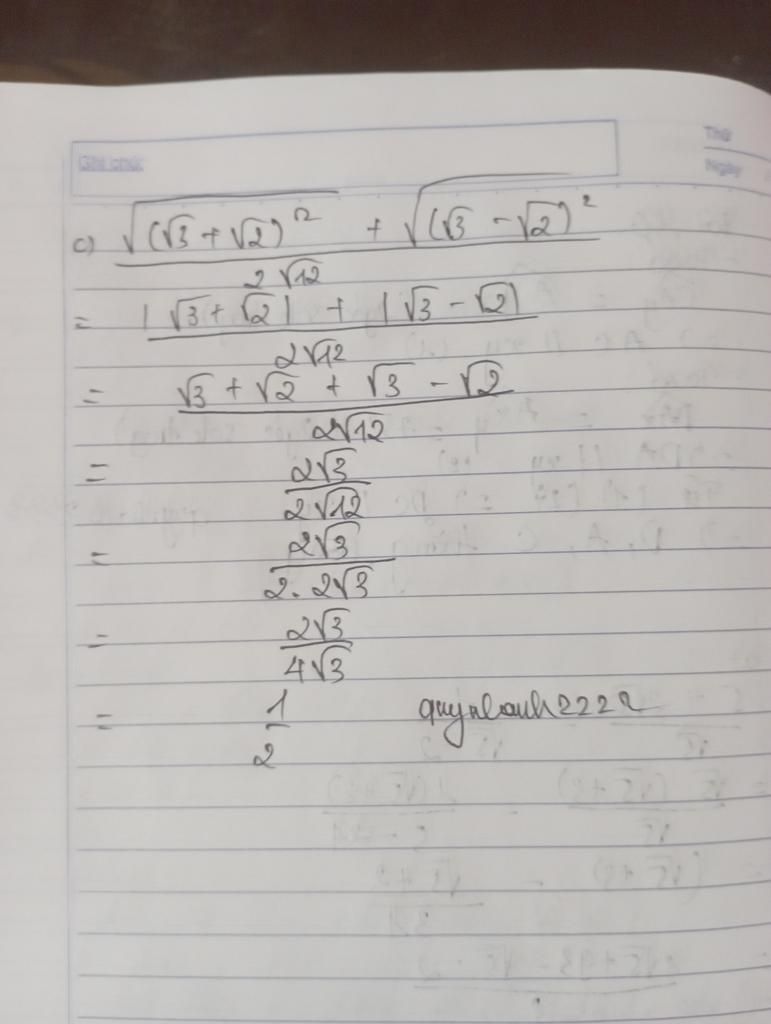 Thứ
Ghi chú:
Ngày
c) √(√3 + √2)² + √(√3 - √2)²
2√12
= |√3 + √2| + |√3 - √2|
2√12
= √3 + √2 + √3 - √2
2√12
= 2√3
2√12
= 2√3
2. 2√3
= 2√3
4√3
= 1 quynhanh2222
2